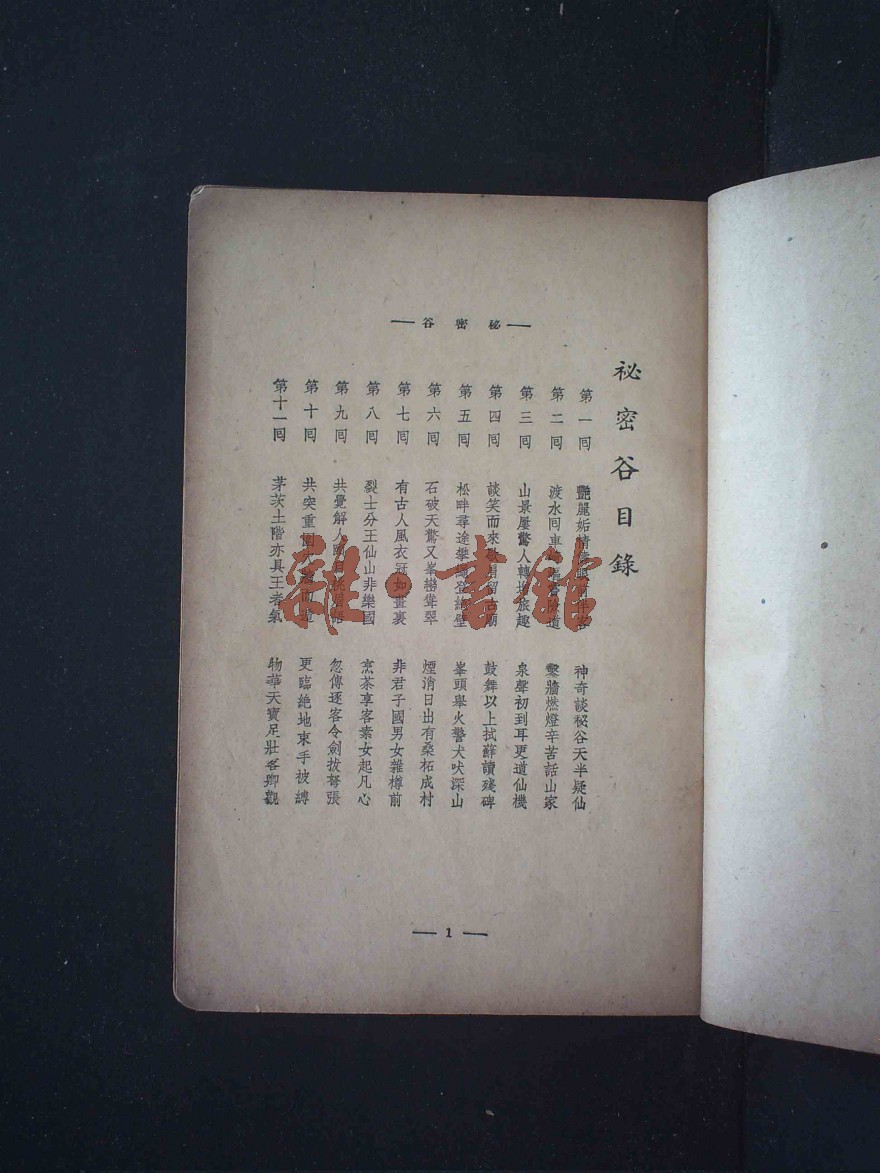 秘密谷
祕密谷目錄
第一回 艷麗妬情 伴客 神奇談秘谷天半疑仙
第二回 渡水囘車 險道 鑿牆燃燈辛苦話山家
第三回 山景屢驚人轉 旅趣 泉聲初到耳更道仙機
第四回 談笑而來 留古廟 鼓舞以上拭蘚讀殘碑
第五回 松畔尋途攀 登絕壁 峯頭舉火警犬吠深山
第六回 石破天驚又峯巒聳翠 煙消日出有桑柘成村
第七回 有古人風衣冠如畫裏 非君子國男女雜樽前
第八回 裂土分王仙山非樂國 烹茶享客素女起凡心
第九回 共覺解人 語 忽傳逐客令劍拔弩張
第十回 共突重圍 而遁 更臨絕地束手被縛
第十一回 茅茨土階亦具王者氣 物華天寶足壯客卿觀
1
雜·書館